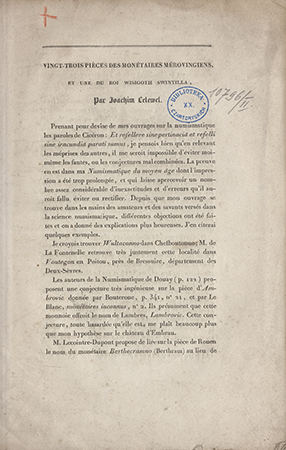 VINGT-TROIS PIÈCES DES MONÉTAIRES MÉROVINGIENS,
ET UNE DU ROI WISIGOTH SWINTILLA,
Par Joachim Lelewel.
BIBLIOTEKA
XX.
CZARTORYSKICH
10796/II
Prenant pour devise de mes ouvrages sur la numismatique
les paroles de Cicéron: Et refellere sine pertinacia et refelli
sine iracundia parati sumus, je pensais bien qu'en relevant
les méprises des autres, il me serait impossible d'éviter moi-
même les fautes, ou les conjectures mal combinées. La preuve
en est dans ma Numismatique du moyen âge dont l'impres-
sion a été trop prolongée, et qui laisse apercevoir un nom-
bre assez considérable d'inexactitudes et d'erreurs qu'il au-
rait fallu éviter ou rectifier. Depuis que mon ouvrage se
trouve dans les mains des amateurs et des savants versés dans
la science numismatique, différentes objections ont été fai-
tes et on a donné des explications plus heureuses. J'en citerai
quelques exemples.
Je croyais trouver Waltaconno dans Cheffoutonne: M. de
La Fontenelle retrouve très justement cette localité dans
Vautegon en Poitou, près de Bressuire, département des
Deux-Sèvres.
Les auteurs de la Numismatique de Douay (p. 122) pro-
posent une conjecture très ingénieuse sur la pièce d'Am-
brovic donnée par Bouteroue, p. 341, n° 21, et par Le
Blanc, monétaires inconnus, n° 2. Ils présument que cette
monnoie offroit le nom de Lambres, Lambrovic. Cette con-
jecture, toute hasardée qu'elle est, me plaît beaucoup plus
que mon hypothèse sur le château d'Embrau.
M. Lecointre-Dupont propose de lire sur la pièce de Rouen
le nom du monétaire Berthecramno (Berthram) au lieu de